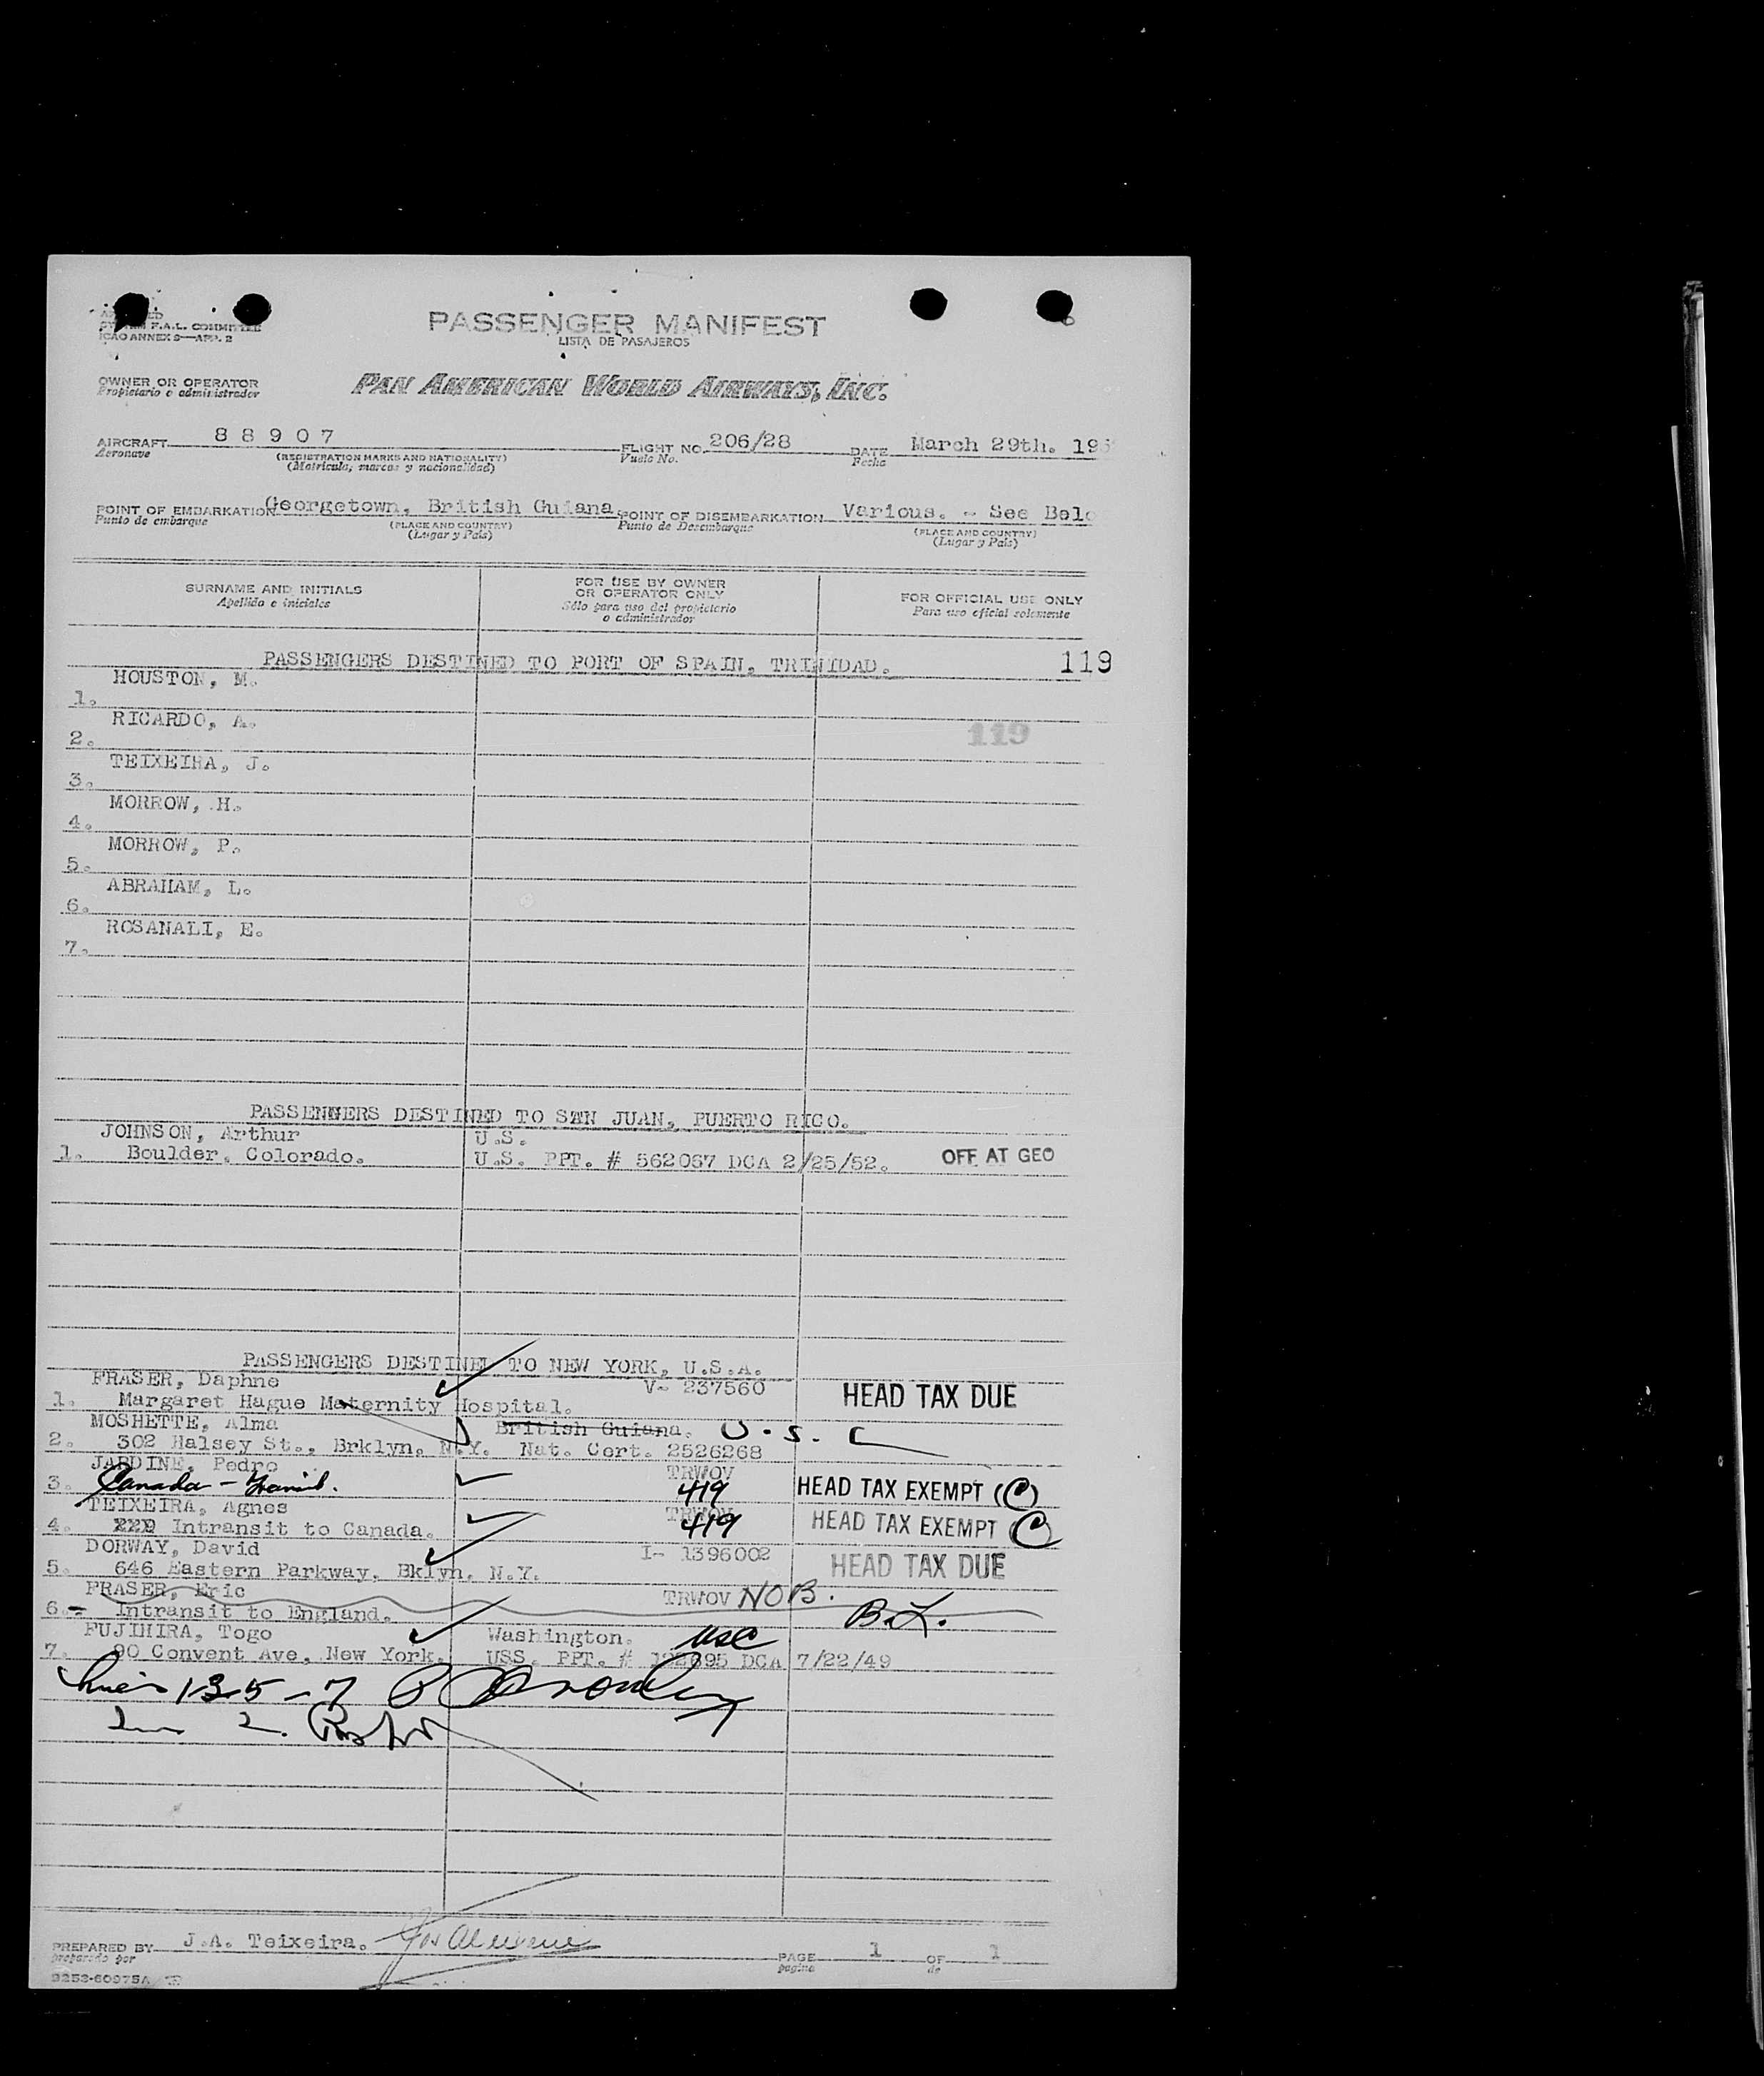 SYSTEM F.A.L. COMMITTEE
ICAO ANNEX 9—APP. 2
PASSENGER MANIFEST
LISTA DE PASAJEROS
OWNER OR OPERATOR
Propietario o administrador
PAN AMERICAN WORLD AIRWAYS, INC.
AIRCRAFT 88907 FLIGHT NO. 206/28 DATE March 29th. 195
Aeronave (REGISTRATION MARKS AND NATIONALITY) Vuelo No. Fecha
(Matricula, marcas y nacionalidad)
POINT OF EMBARKATION Georgetown, British Guiana. POINT OF DISEMBARKATION Various. - See Belo
Punto de embarque (PLACE AND COUNTRY) Punto de Desembarque (PLACE AND COUNTRY)
(Lugar y País) (Lugar y País)
SURNAME AND INITIALS FOR USE BY OWNER OR OPERATOR ONLY FOR OFFICIAL USE ONLY
Apellido e iniciales Sólo para uso del propietario o administrador Para uso oficial solamente
PASSENGERS DESTINED TO PORT OF SPAIN, TRINIDAD. 119
HOUSTON, M.
1.
RICARDO, A.
2. 119
TEIXEIRA, J.
3.
MORROW, H.
4.
MORROW, P.
5.
ABRAHAM, L.
6.
ROSANALI, E.
7.
PASSENGERS DESTINED TO SAN JUAN, PUERTO RICO.
JOHNSON, Arthur U.S.
1. Boulder, Colorado. U.S. PPT. # 562067 DCA 2/25/52. OFF AT GEO
PASSENGERS DESTINED TO NEW YORK, U.S.A.
FRASER, Daphne V- 237560 HEAD TAX DUE
1. Margaret Hague Maternity Hospital.
MOSHETTE, Alma British Guiana. U.S.C
2. 302 Halsey St., Brklyn, N.Y. Nat. Cert. 2526268
JARDINE, Pedro TRWOV
3. Canada - Transit. 419 HEAD TAX EXEMPT (C)
TEIXEIRA, Agnes TRWOV
4. Intransit to Canada. 419 HEAD TAX EXEMPT (C)
DORWAY, David I- 1396002 HEAD TAX DUE
5. 646 Eastern Parkway, Bklyn, N.Y.
FRASER, Eric TRWOV NOB.
6.- Intransit to England. B.L.
FUJIHIRA, Togo Washington. USC
7. 90 Convent Ave, New York. USS. PPT. # DCA 7/22/49
1-3-5-7
2.
PREPARED BY J.A. Teixeira. PAGE 1 OF 1
preparado por pagina de
9253-60975A